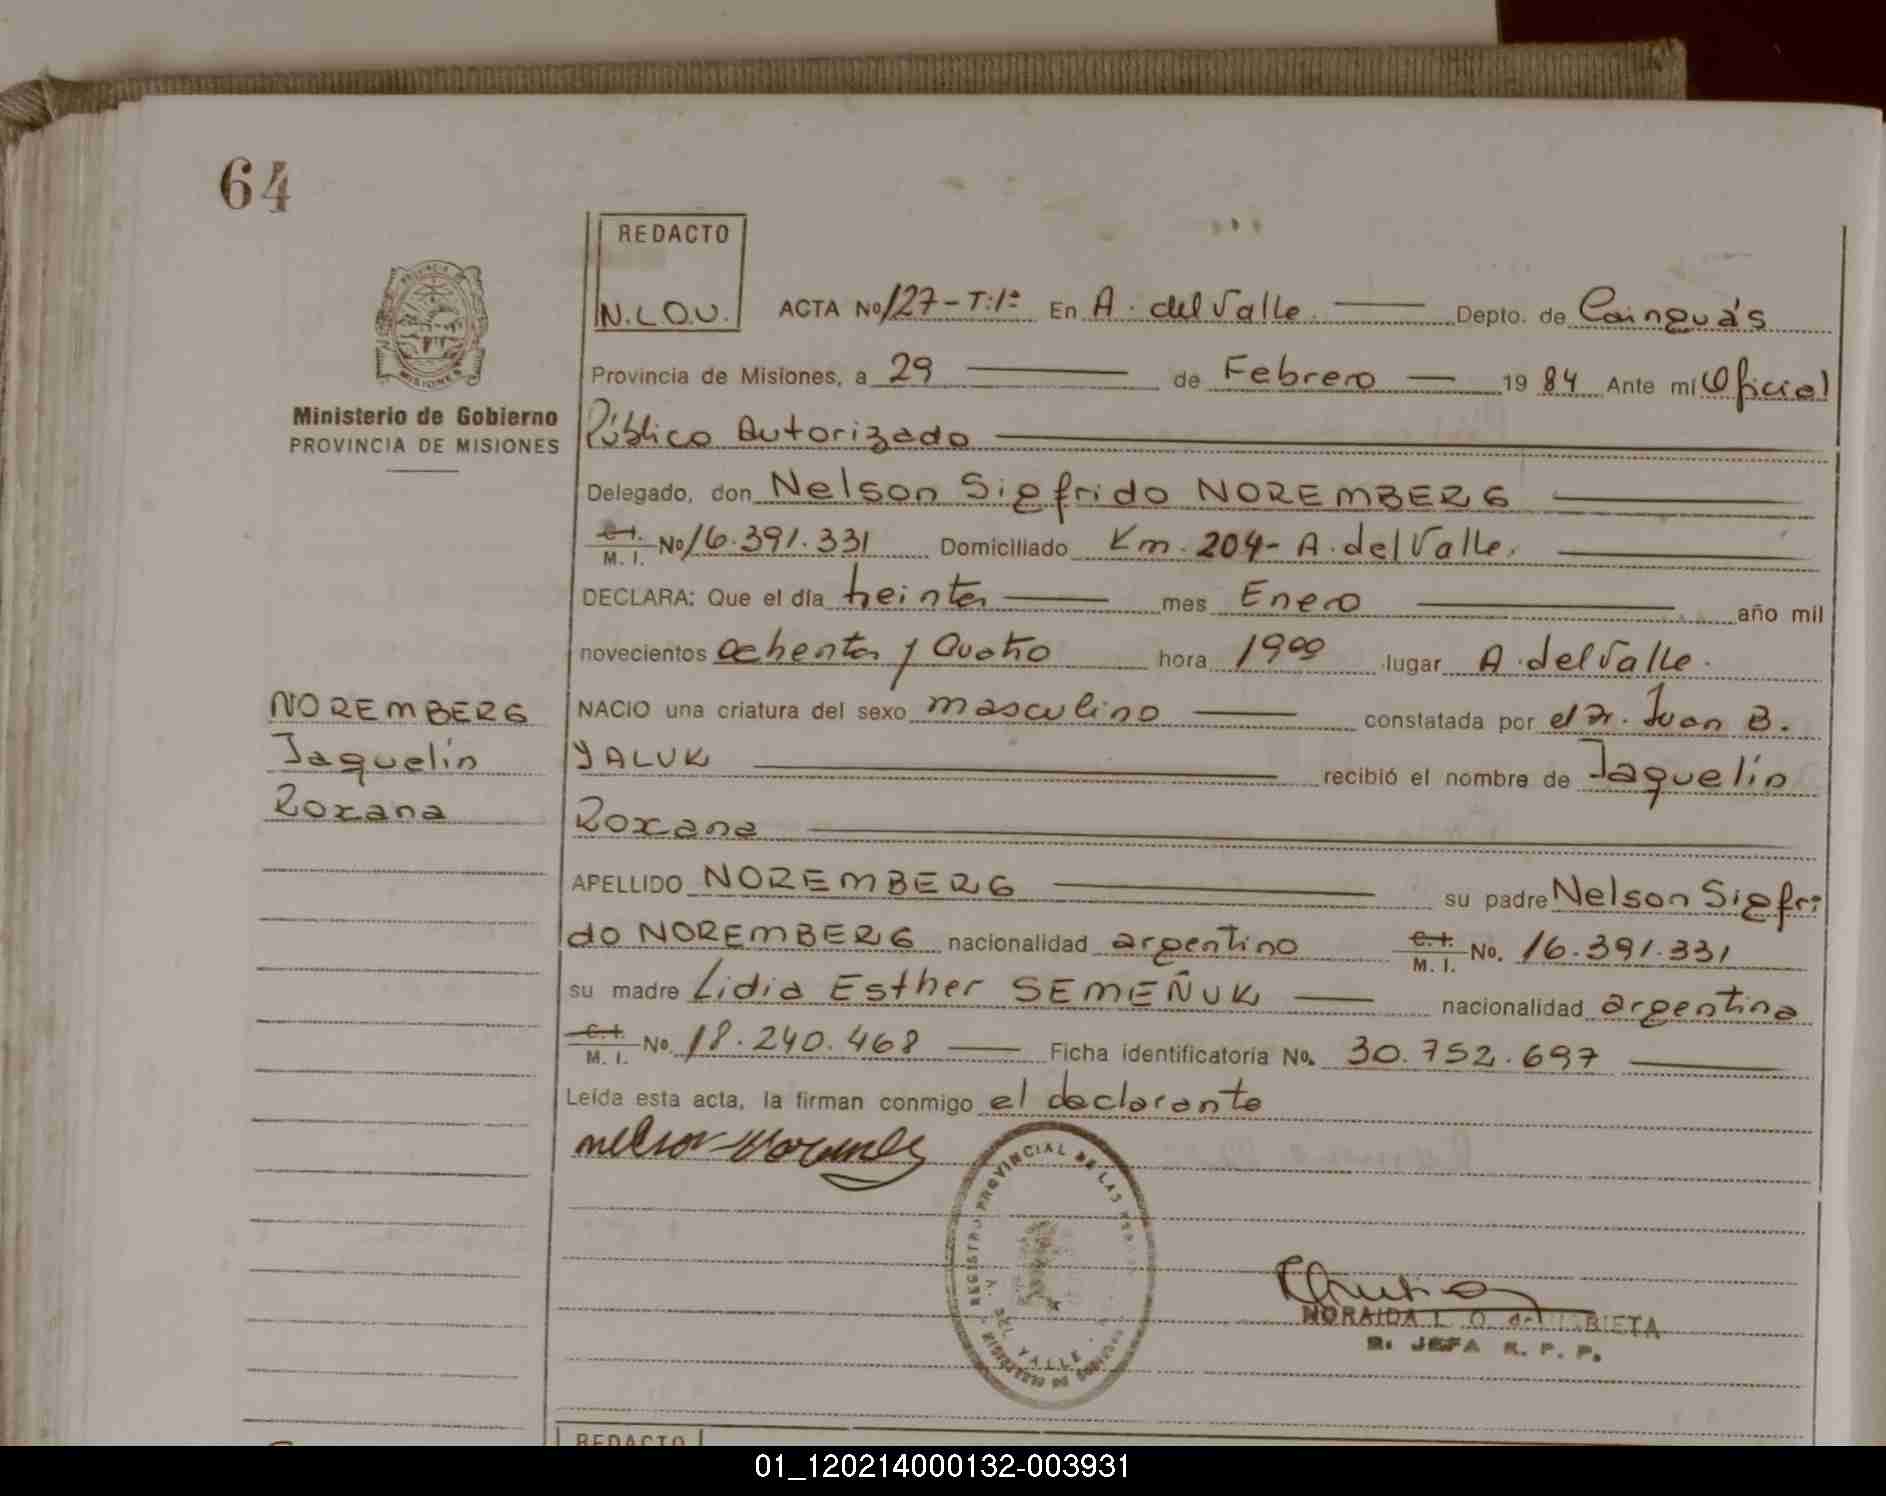 64
REDACTO
N.L.O.U.
ACTA No 127-T:1º En A. del Valle. Depto. de Cainguás
Provincia de Misiones, a 29 de Febrero 19 84 Ante mí Oficial
Ministerio de Gobierno
PROVINCIA DE MISIONES
Público Autorizado
Delegado, don Nelson Sigfrido NOREMBERG
C.I. M. I. No 16.391.331 Domiciliado Km. 204- A. del Valle.
DECLARA: Que el día treinta mes Enero año mil
novecientos ochenta y cuatro hora 19⁰⁰ lugar A. del Valle.
NOREMBERG
Jaquelin
Roxana
NACIO una criatura del sexo masculino constatada por el Dr. Juan B.
YALUK recibió el nombre de Jaquelin
Roxana
APELLIDO NOREMBERG su padre Nelson Sigfri
do NOREMBERG nacionalidad argentino C.I. M. I. No. 16.391.331
su madre Lidia Esther SEMEÑUK nacionalidad argentina
C.I. M. I. No. 18.240.468 Ficha identificatoria No. 30.752.697
Leída esta acta, la firman conmigo el declarante
REGISTRO PROVINCIAL DE LAS
DEL VALLE
NORAIDA L. O. de
R. JEFA R. P. P.
REDACTO
01_120214000132-003931